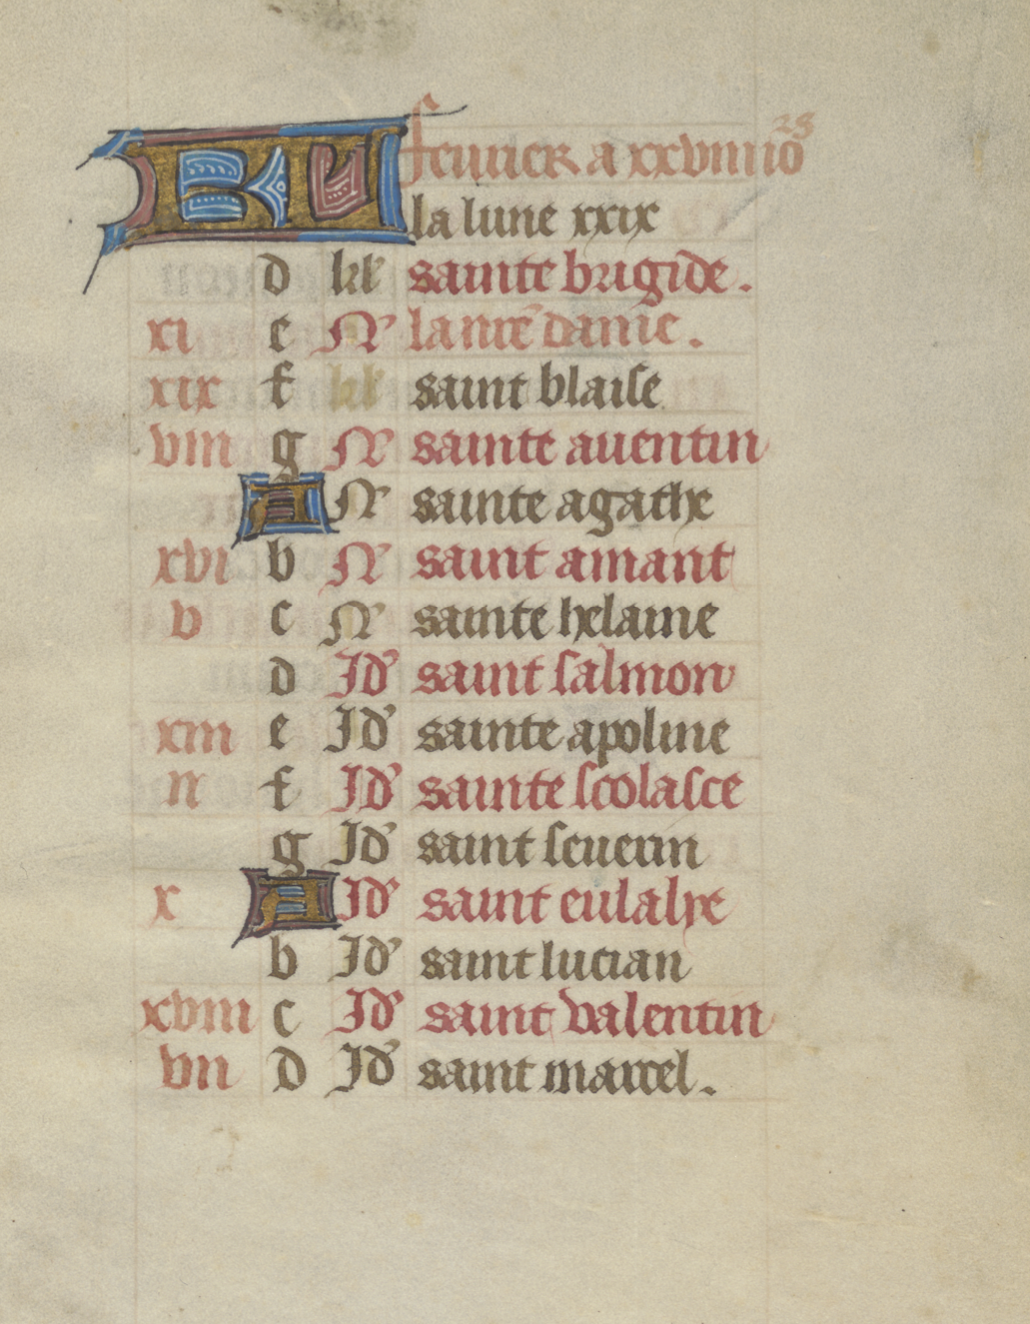 KL feurier a xxviii io 28
la lune xxix
d kl' sainte brigide.
xi e N' la nre dame.
xix f kl' saint blaise
viii g N' sainte auentin
A N' sainte agathe
xvi b N' saint amant
v c N' sainte helaine
d Id' saint salmon
xiii e Id' sainte apoline
ii f Id' sainte scolasce
g Id' saint seuerin
x A Id' saint eulalye
b Id' saint lucian
xviii c Id' saint valentin
vii d Id' saint marcel.